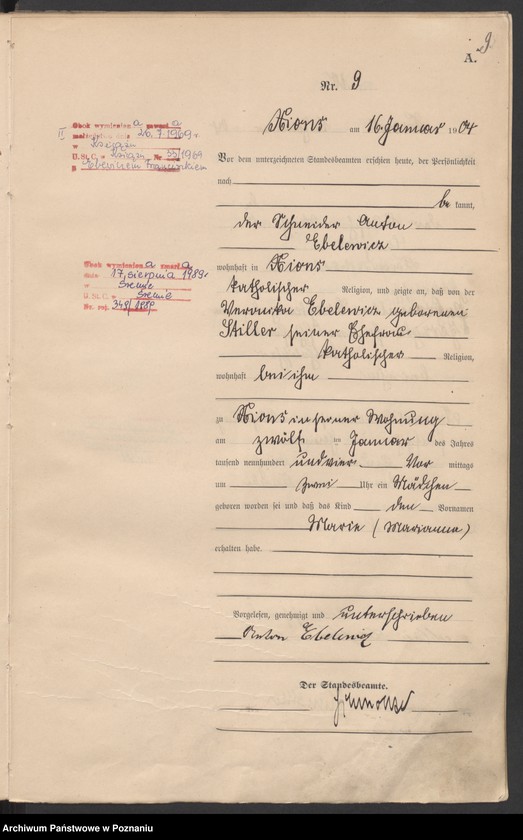 9
A.
Nr. 9
Xions am 16. Januar 1904
Vor dem unterzeichneten Standesbeamten erschien heute, der Persönlichkeit
nach
be kannt,
der Schneider Anton
Ebelewicz
wohnhaft in Xions
katholischer Religion, und zeigte an, daß von der
Veronika Ebelewicz geborenen
Stiller seiner Ehefrau
katholischer Religion,
wohnhaft bei ihm
zu Xions in seiner Wohnung
am zwölf ten Januar des Jahres
tausend neunhundert und vier Vor mittags
um zwei Uhr ein Mädchen
geboren worden sei und daß das Kind den Vornamen
Marie (Marianna)
erhalten habe.
Vorgelesen, genehmigt und unterschrieben
Anton Ebelewicz
Der Standesbeamte.
II Obok wymienion a zawarł a
małżeństwo dnia 26.7.1969 r.
w Książu
U.S.C. w Książu Nr 35/1969
z Franciszkiem
Obok wymieniona zmarła
dnia 17 sierpnia 1989 r
w Śremie
U.S.C. w Śremie
Nr. rej. 349/1989
Archiwum Państwowe w Poznaniu